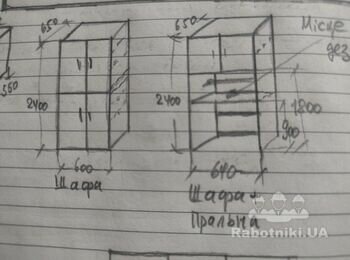 650
650
Місце
дез
550
2400
2400
1200
900
600
640
Шафа
Шафа+
Пральна
Rabotniki.UA